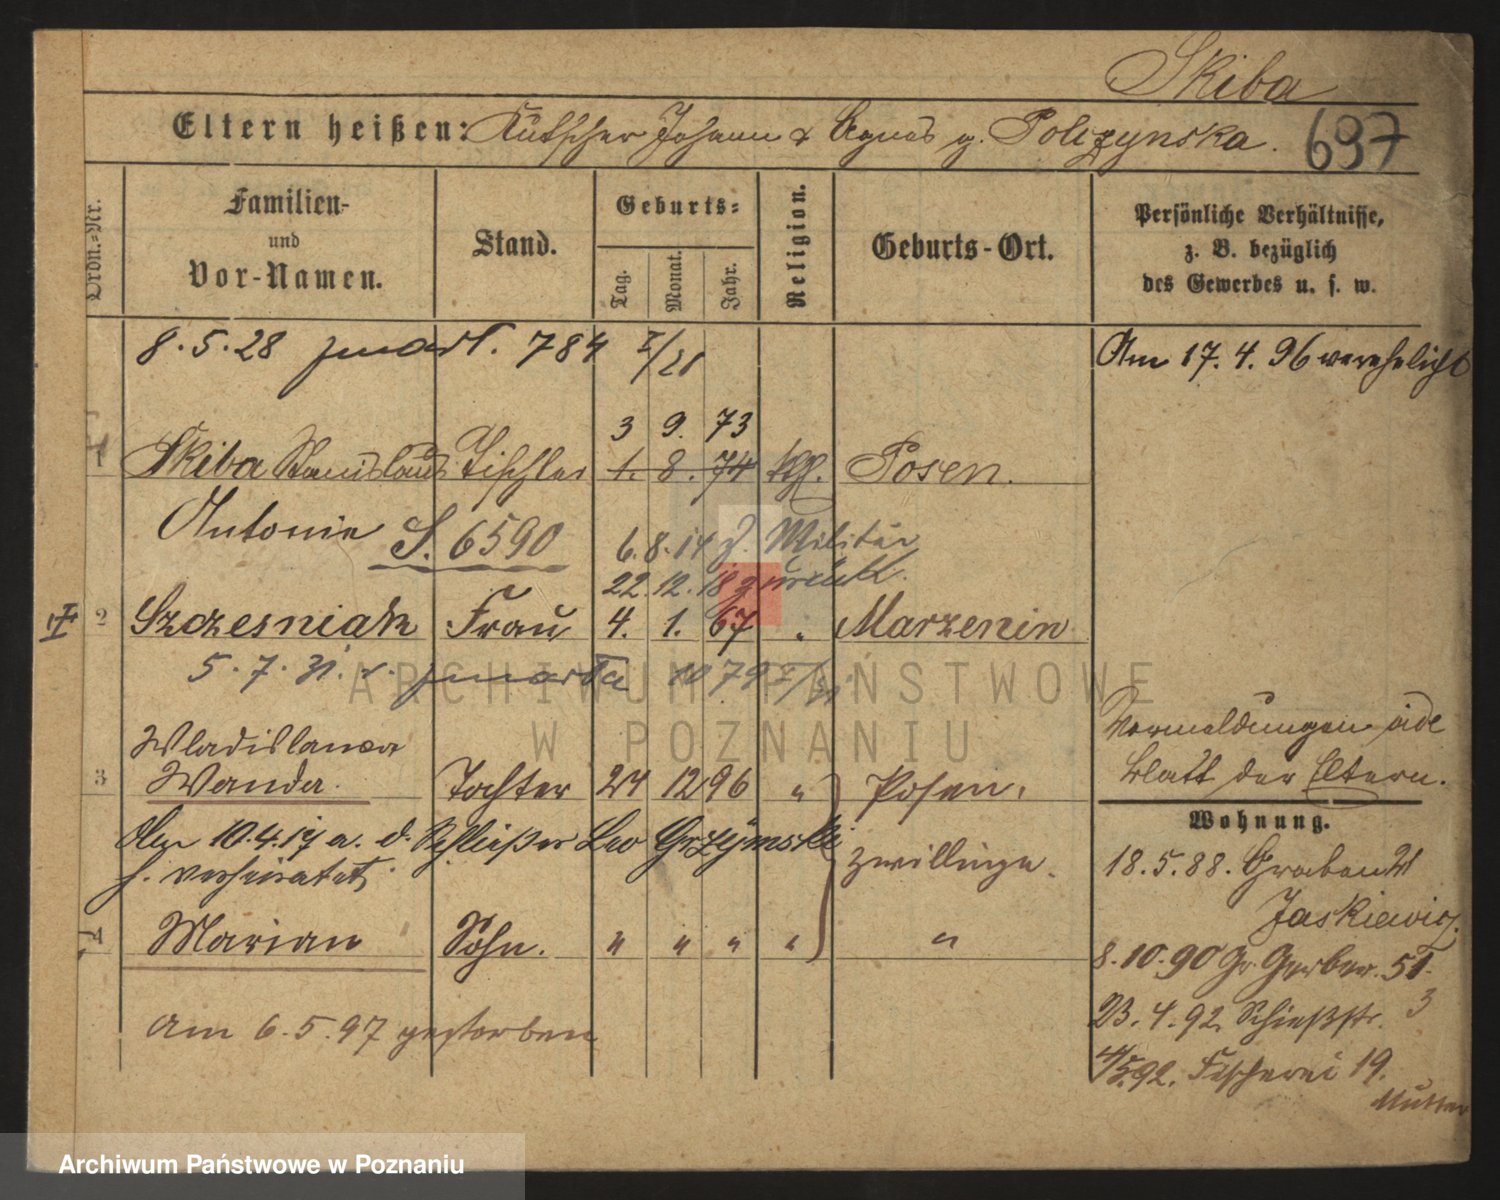 Skiba
Eltern heißen: Kutscher Johann & Agnes g. Polczynska.
697
Ordn.-Nr.
Familien-
und
Vor-Namen.
Stand.
Geburts-
Tag.
Monat.
Jahr.
Religion.
Geburts-Ort.
Persönliche Verhältnisse,
z. B. bezüglich
des Gewerbes u. s. w.
8.5.28 zmarł. 784 I/28
Am 17.4.96 verehelicht
3 9. 73
1 Skiba Stanislaus Tischler 1. 8. 74 kth. Posen.
Antonie S. 6590
6.8.14 z. Militär
22.12.18 zurück.
2 Szczesniak Frau 4. 1. 67 " Marzenin
5.7.31. zmarła 1079
ARCHIWUM PAŃSTWOWE
W POZNANIU
Wladislawa
3 Wanda. Tochter 24 12 96 " Posen.
Vormeldungen
Blatt der Eltern.
Wohnung.
Am 10.4.17 a. d. Schließer Leo Grzymski
h. verheiratet.
Zwillinge.
18.5.88. Graben 21
Jaskiewicz.
4 Marian Sohn. " " " " "
8.10.90 Gr. Gerber. 51.
23.4.92. Schießstr. 3
Am 6.5.97 gestorben
Fischerei 19.
Mutter
Archiwum Państwowe w Poznaniu